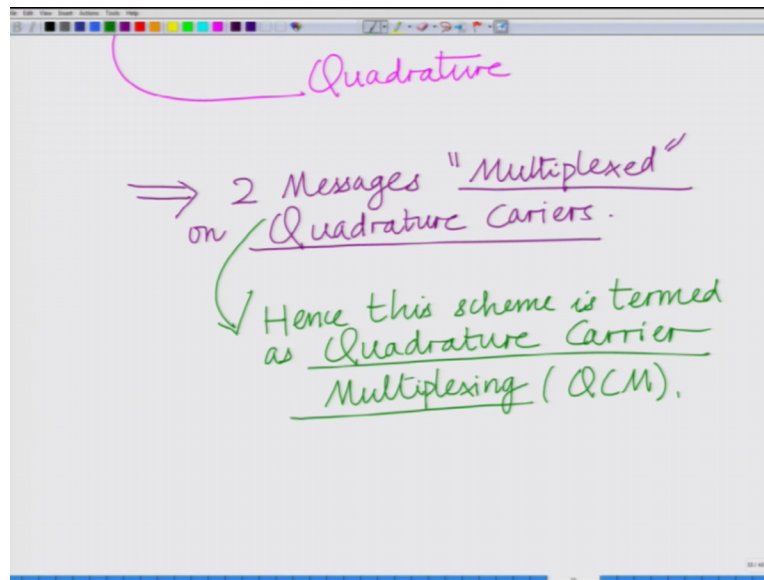 Edit View Insert Actions Tools Help
Quadrature
⇒ 2 Messages "Multiplexed"
on Quadrature Cariers.
Hence this scheme is termed
as Quadrature Carrier
Multiplexing (QCM).